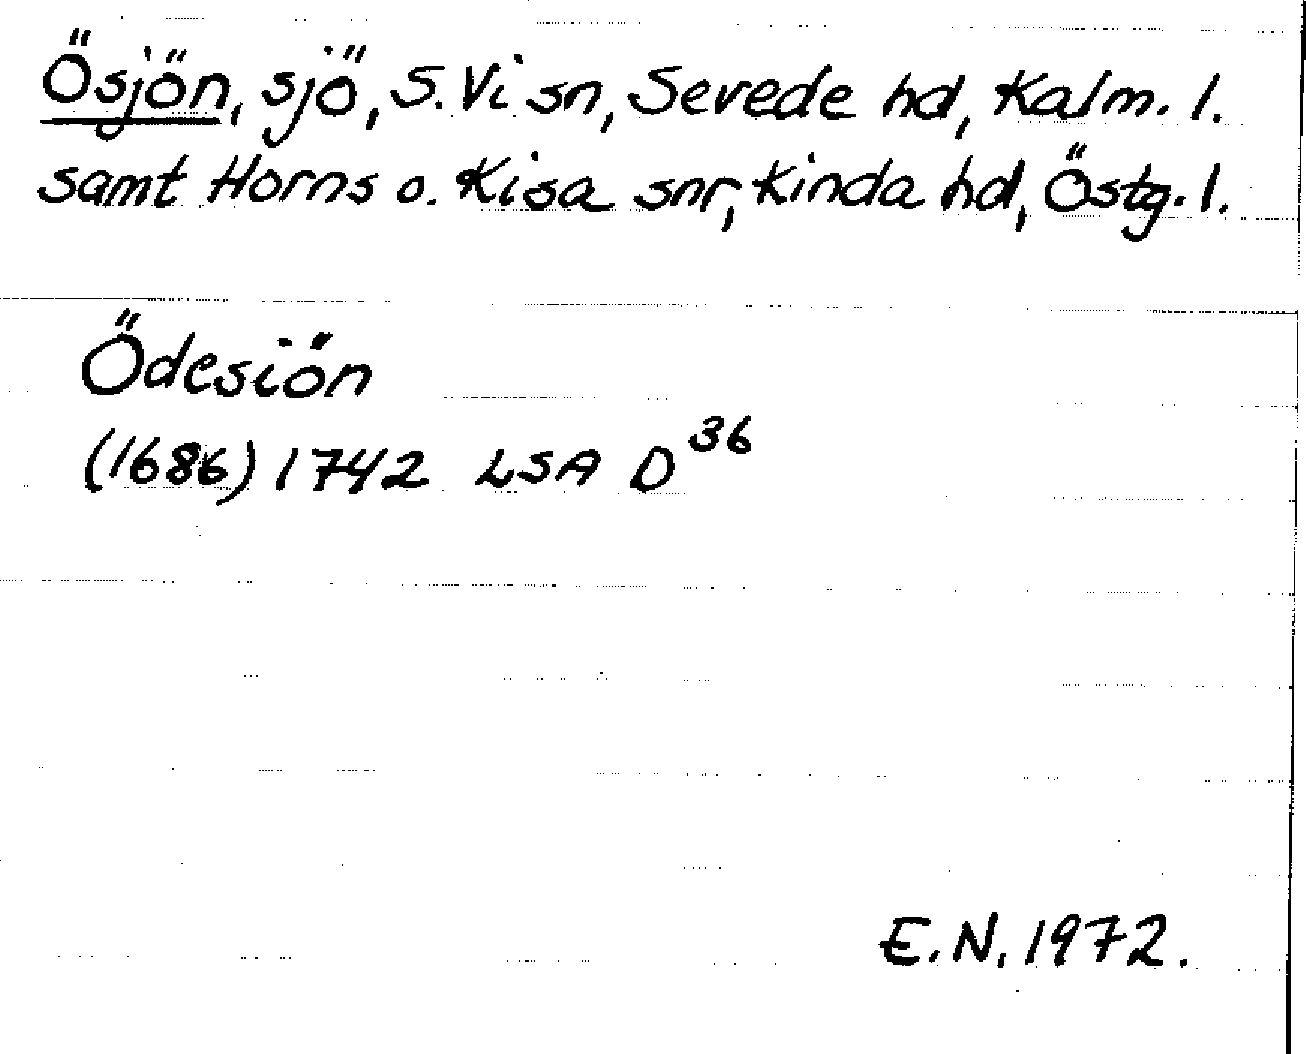 Ösjön, sjö, S. Vi sn, Sevede hd, Kalm. l.
samt Horns o. Kisa snr, Kinda hd, Östg. l.
Ödesiön
(1686) 1742 LSA D36
E.N. 1972.